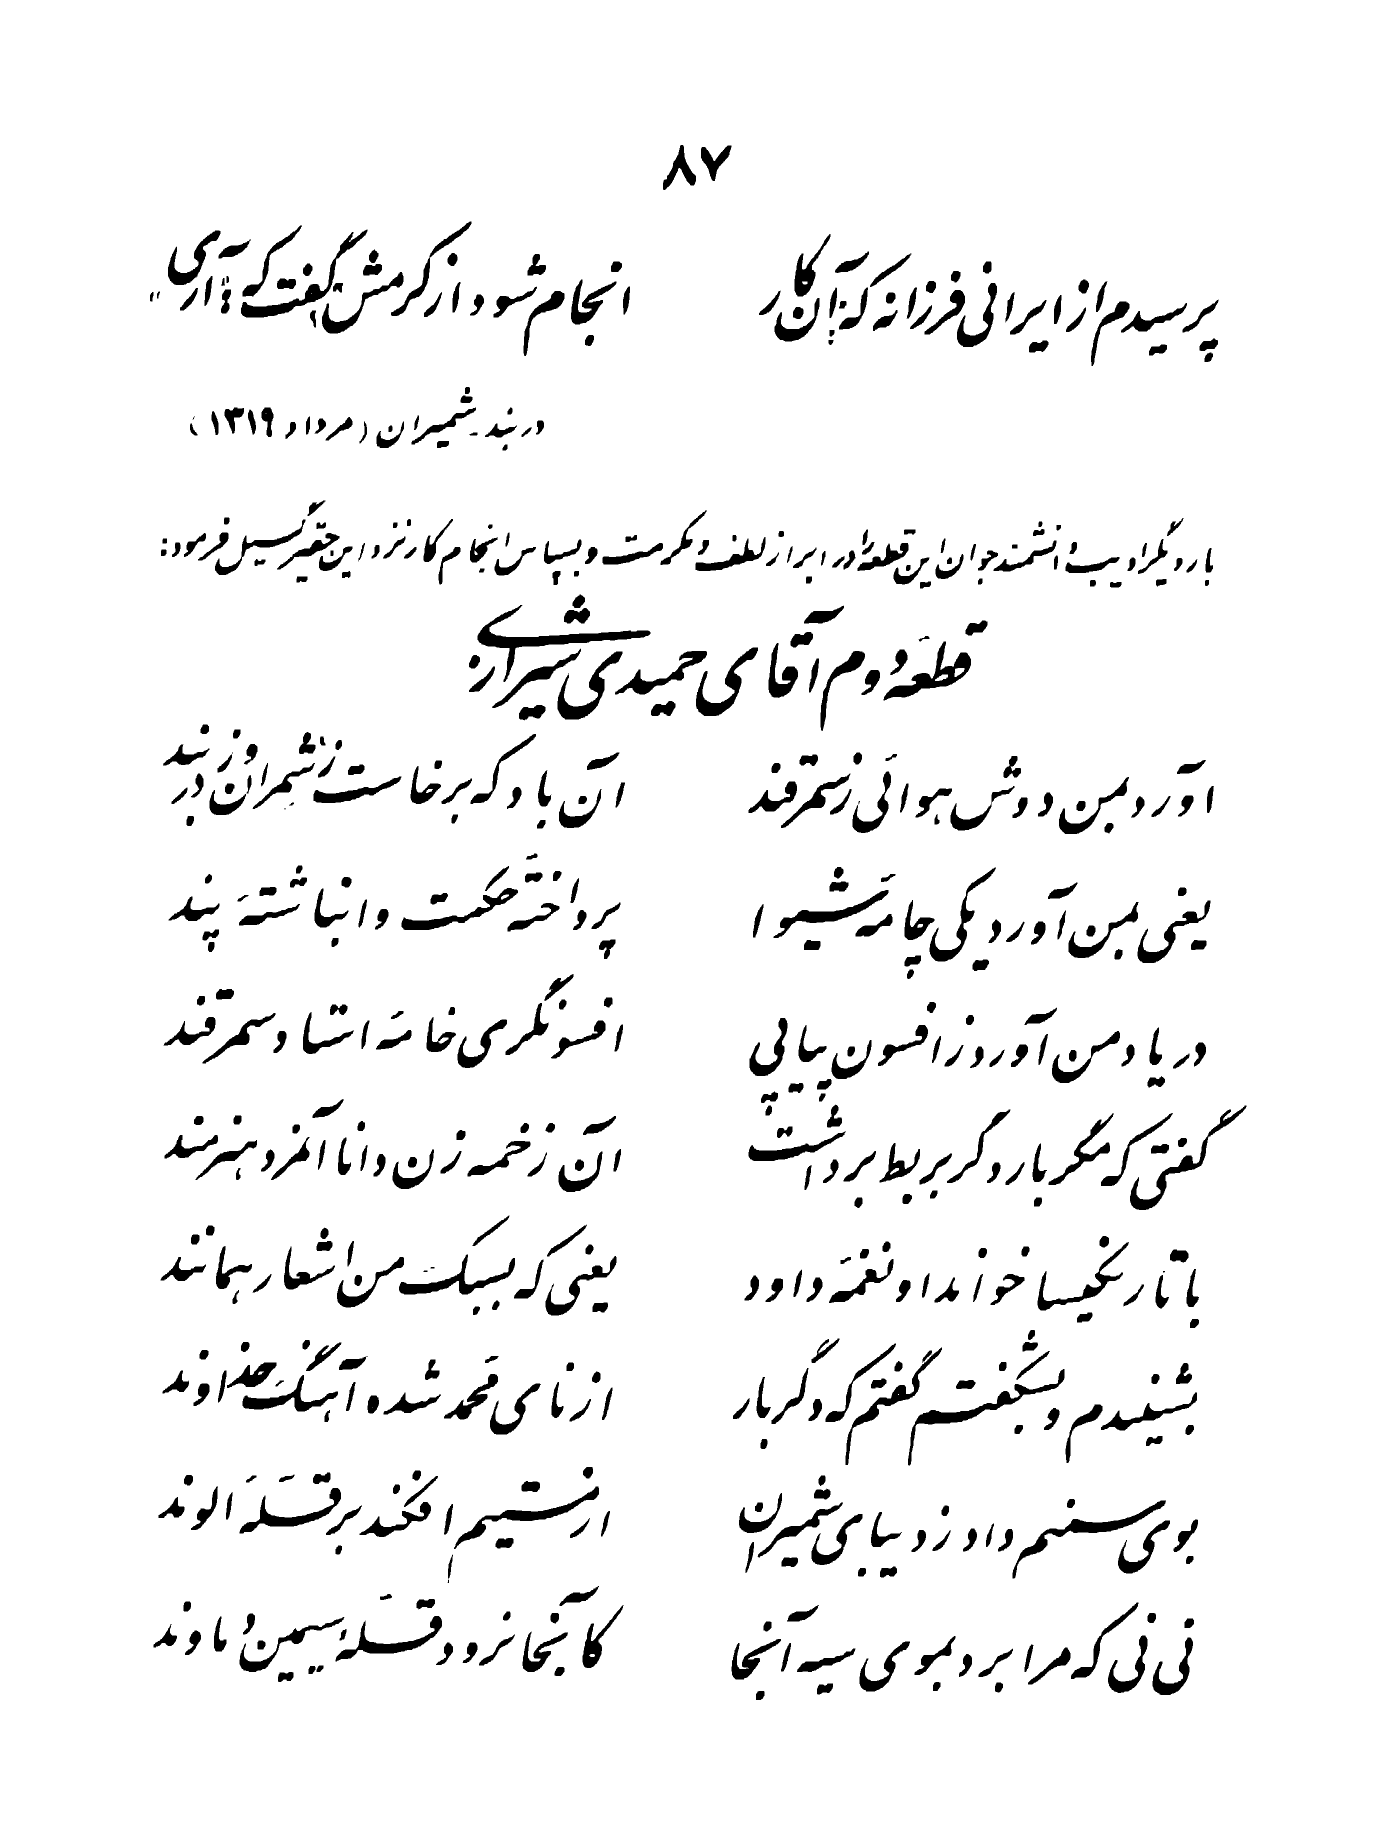 ۸۷
پرسیدم از ایرانی فرزانه که: آن کار انجام شود از کرمش؟ گفت که: آری «
دربند - شمیران (مرداد ۱۳۱۹)
بار دیگر ادیب دانشمند جوان این قطعه را در ابراز لطف و مکرمت و بسپاس انجام کار نزد این حقیر گسیل فرمود:
قطعهٔ دوم آقای حمیدی شیرازی:
آورد بمن دوش هوائی ز سمرقند آن باد که برخاست ز شمران و ز دربند
یعنی بمن آورد یکی چامهٔ شیوا پرداختهٔ حکمت و انباشتهٔ پند
در یاد من آورد ز افسون پیاپی افسونگری خامهٔ استاد سمرقند
گفتی که مگر بار دگر بربط برداشت آن زخمه زن دانا آنمرد هنرمند
با تار نکیسا خواند او نغمهٔ داود یعنی که بسبک من اشعار همانند
بشنیدم و بشگفتم گفتم که دگر بار از نای محمد شده آهنگ خداوند
بوی سمنم داد ز دیبای شمیران ار نستیم افکند بر قلهٔ الوند
نی نی که مرا برد بموی سیه آنجا کآنجا نرود قلهٔ سیمین دماوند